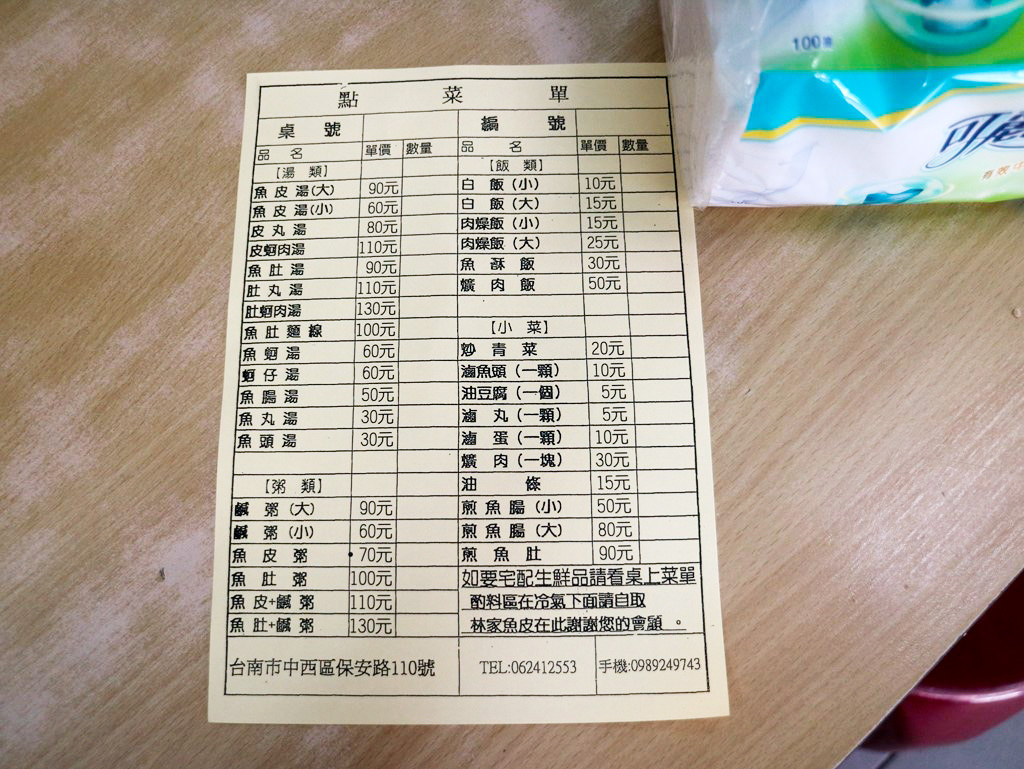 點 菜 單
桌 號 編 號
品 名 單價 數量
【湯 類】
魚皮湯(大) 90元
魚皮湯(小) 60元
皮丸湯 80元
皮蚵肉湯 110元
魚肚湯 90元
肚丸湯 110元
肚蚵肉湯 130元
魚肚麵線 100元
魚蚵湯 60元
蚵仔湯 60元
魚腸湯 50元
魚丸湯 30元
魚頭湯 30元
【粥 類】
鹹 粥(大) 90元
鹹 粥(小) 60元
魚皮粥 70元
魚肚粥 100元
魚皮+鹹粥 110元
魚肚+鹹粥 130元
品 名 單價 數量
【飯 類】
白 飯(小) 10元
白 飯(大) 15元
肉燥飯(小) 15元
肉燥飯(大) 25元
魚酥飯 30元
爌肉飯 50元
【小 菜】
炒青菜 20元
滷魚頭(一顆) 10元
油豆腐(一個) 5元
滷 丸(一顆) 5元
滷 蛋(一顆) 10元
爌 肉(一塊) 30元
油 條 15元
煎魚腸(小) 50元
煎魚腸(大) 80元
煎魚肚 90元
如要宅配生鮮品請看桌上菜單
酌料區在冷氣下面請自取
林家魚皮在此謝謝您的會顧 。
台南市中西區保安路110號
TEL:062412553
手機:0989249743
100
可